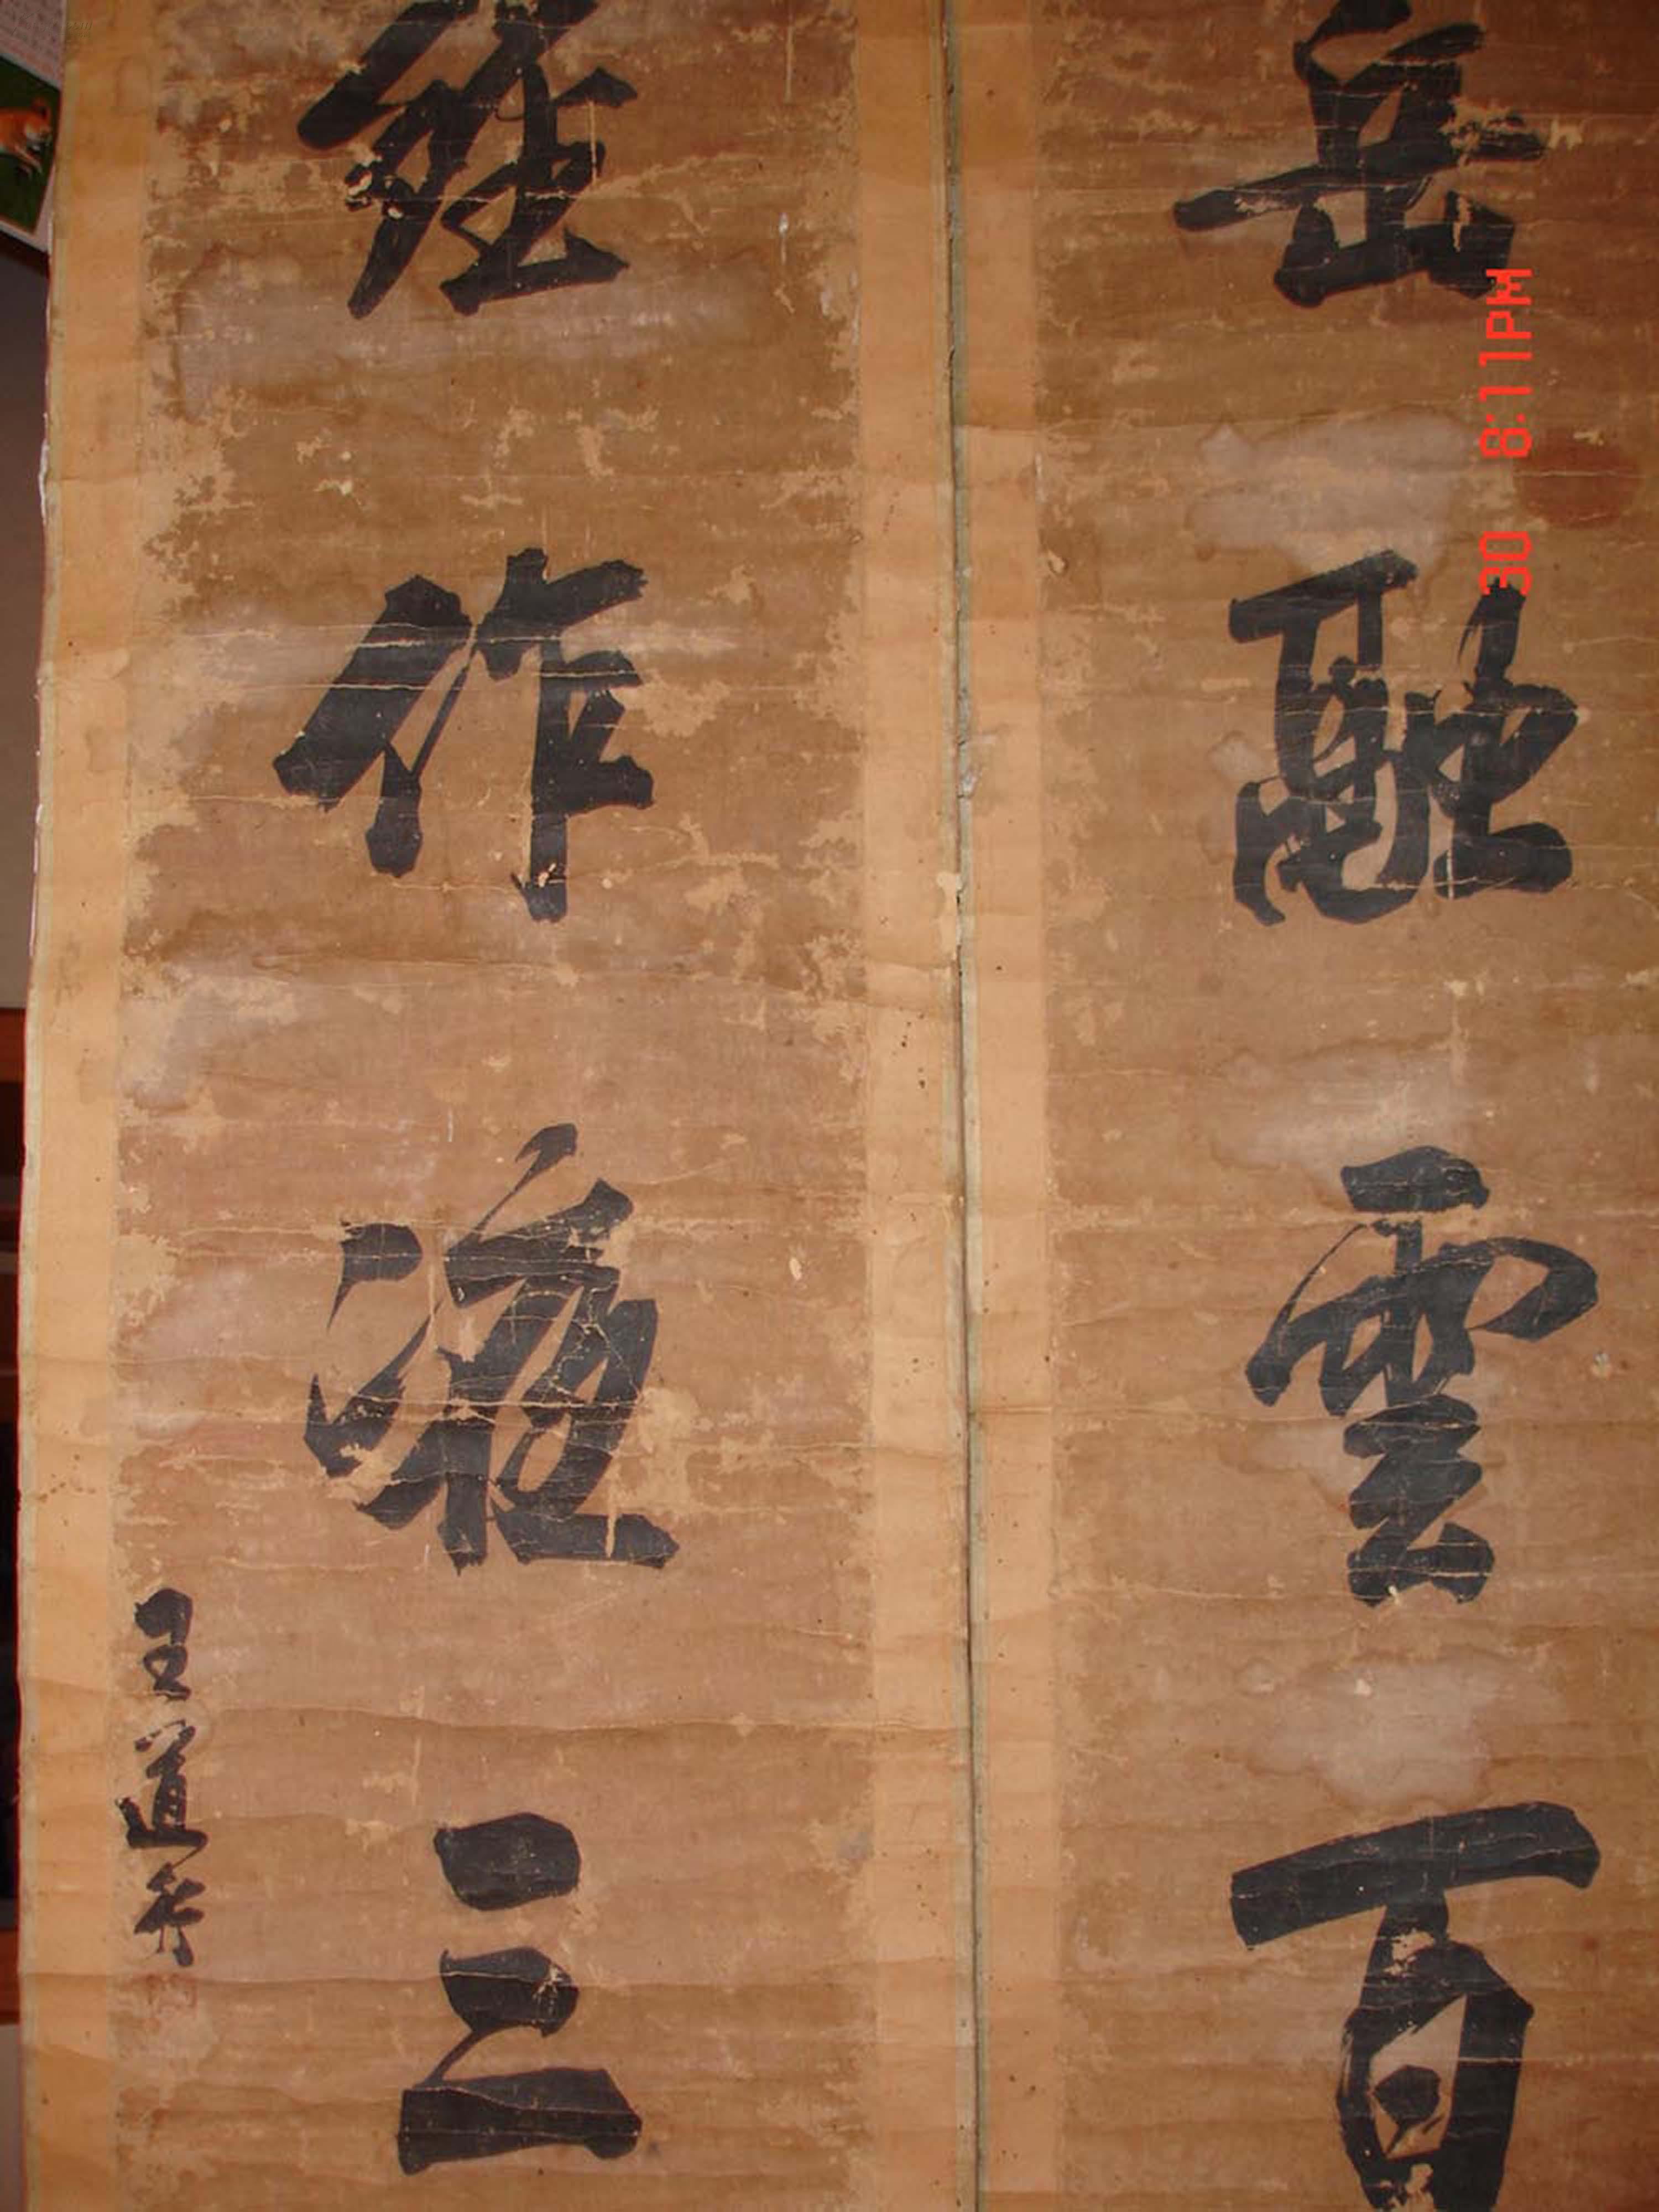 岳融雲百
經作液三
王道
30 8:11PM